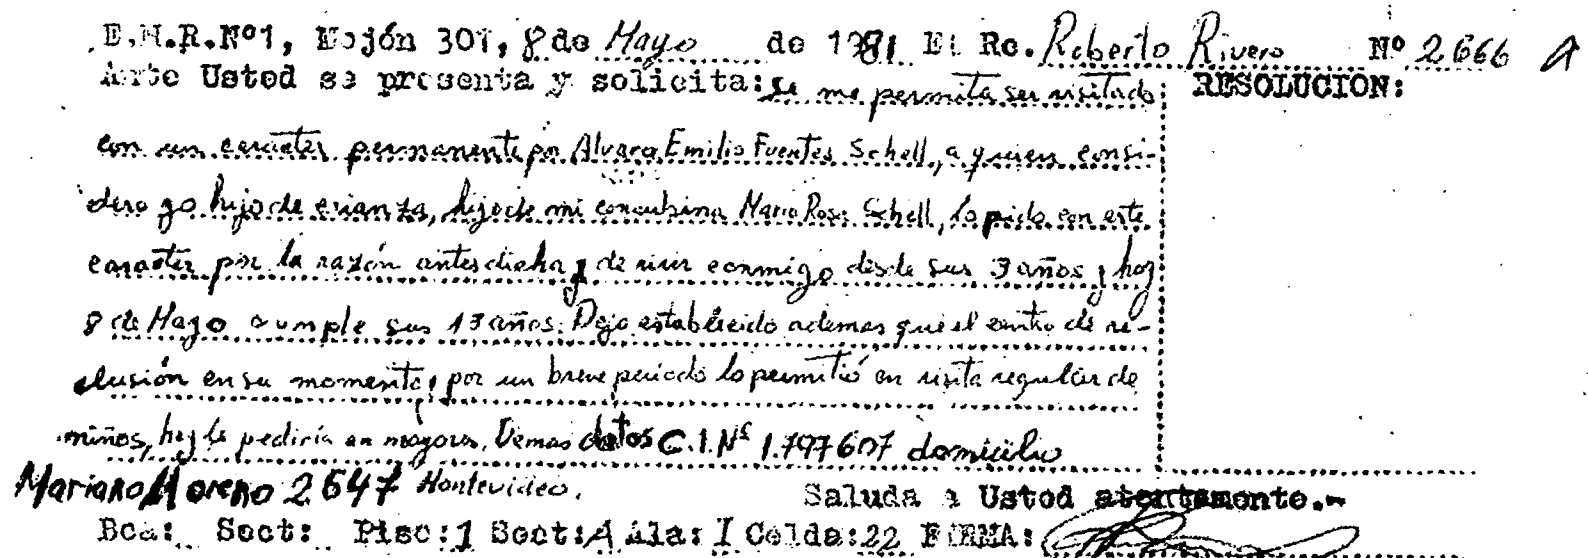 E.M.R.Nº1, Mojón 301, 8 de Mayo de 1981 El Rc. Roberto Rivero Nº 2666 A
Ante Usted se presenta y solicita: se me permita ser visitado RESOLUCION:
con un caracter permanente por Alvaro Emilio Fuentes Schell, a quien consi-
dero yo hijo de crianza, hijo de mi concubina Maria Rosa Schell, lo pido con este
caracter por la razón antes dicha y de vivir conmigo desde sus 3 años y hoy
8 de Mayo cumple sus 13 años. Dejo establecido ademas que el centro de re-
clusión en su momento, por un breve periodo lo permitió en visita regular de
niños, hoy le pediría en mayores. Demas datos C.I. Nº 1.797607 domicilio
Mariano Moreno 2647 Montevideo. Saluda a Usted atentamente.-
Bca: Sect: Piso: 1 Sect: A Ala: I Celda: 22 FIRMA: